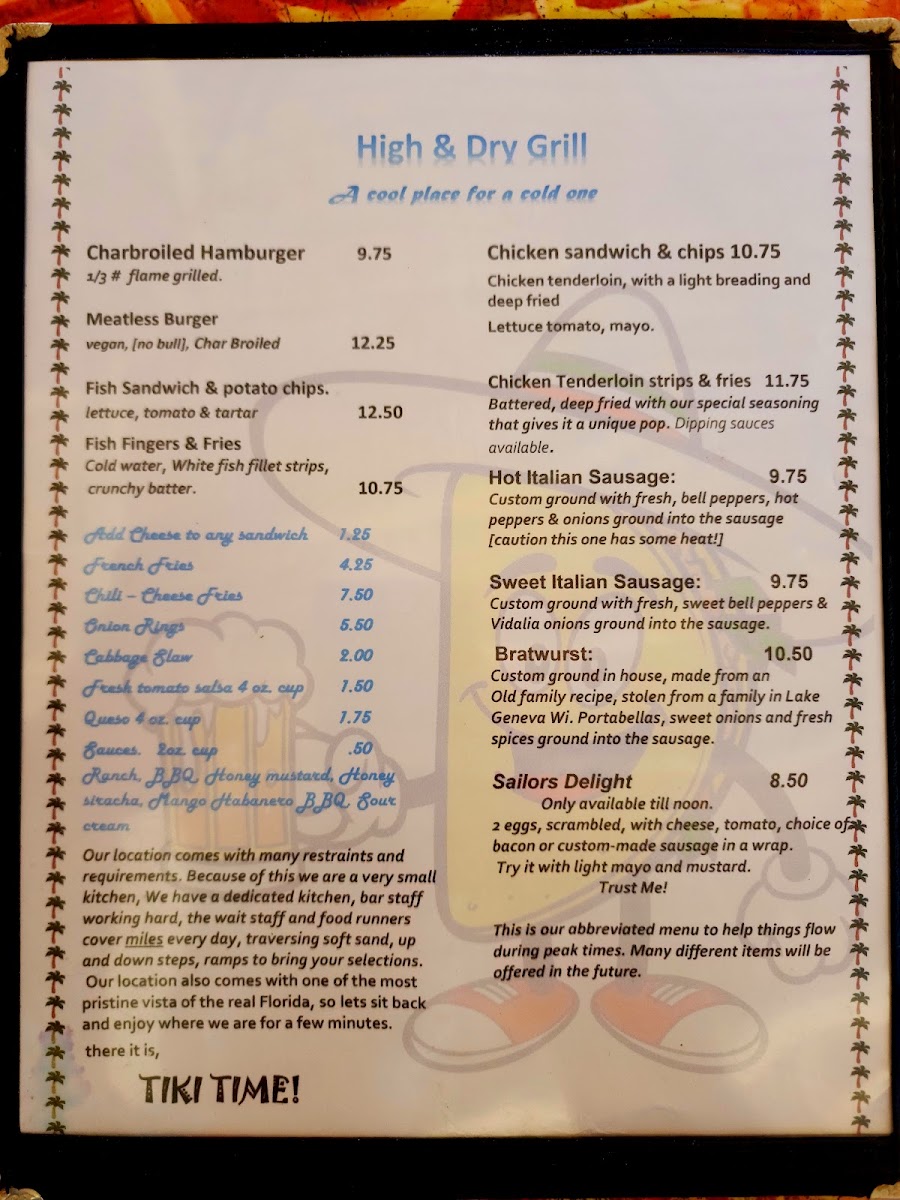 High & Dry Grill
A cool place for a cold one
Charbroiled Hamburger 9.75
1/3 # flame grilled.
Meatless Burger
vegan, [no bull], Char Broiled 12.25
Fish Sandwich & potato chips.
lettuce, tomato & tartar 12.50
Fish Fingers & Fries
Cold water, White fish fillet strips,
crunchy batter. 10.75
Add Cheese to any sandwich 1.25
French Fries 4.25
Chili - Cheese Fries 7.50
Onion Rings 5.50
Cabbage Slaw 2.00
Fresh tomato salsa 4 oz. cup 1.50
Queso 4 oz. cup 1.75
Sauces. 2oz. cup .50
Ranch, BBQ, Honey mustard, Honey
siracha, Mango Habanero BBQ, Sour
cream
Our location comes with many restraints and
requirements. Because of this we are a very small
kitchen, We have a dedicated kitchen, bar staff
working hard, the wait staff and food runners
cover miles every day, traversing soft sand, up
and down steps, ramps to bring your selections.
Our location also comes with one of the most
pristine vista of the real Florida, so lets sit back
and enjoy where we are for a few minutes.
there it is,
TIKI TIME!
Chicken sandwich & chips 10.75
Chicken tenderloin, with a light breading and
deep fried
Lettuce tomato, mayo.
Chicken Tenderloin strips & fries 11.75
Battered, deep fried with our special seasoning
that gives it a unique pop. Dipping sauces
available.
Hot Italian Sausage: 9.75
Custom ground with fresh, bell peppers, hot
peppers & onions ground into the sausage
[caution this one has some heat!]
Sweet Italian Sausage: 9.75
Custom ground with fresh, sweet bell peppers &
Vidalia onions ground into the sausage.
Bratwurst: 10.50
Custom ground in house, made from an
Old family recipe, stolen from a family in Lake
Geneva Wi. Portabellas, sweet onions and fresh
spices ground into the sausage.
Sailors Delight 8.50
Only available till noon.
2 eggs, scrambled, with cheese, tomato, choice of
bacon or custom-made sausage in a wrap.
Try it with light mayo and mustard.
Trust Me!
This is our abbreviated menu to help things flow
during peak times. Many different items will be
offered in the future.